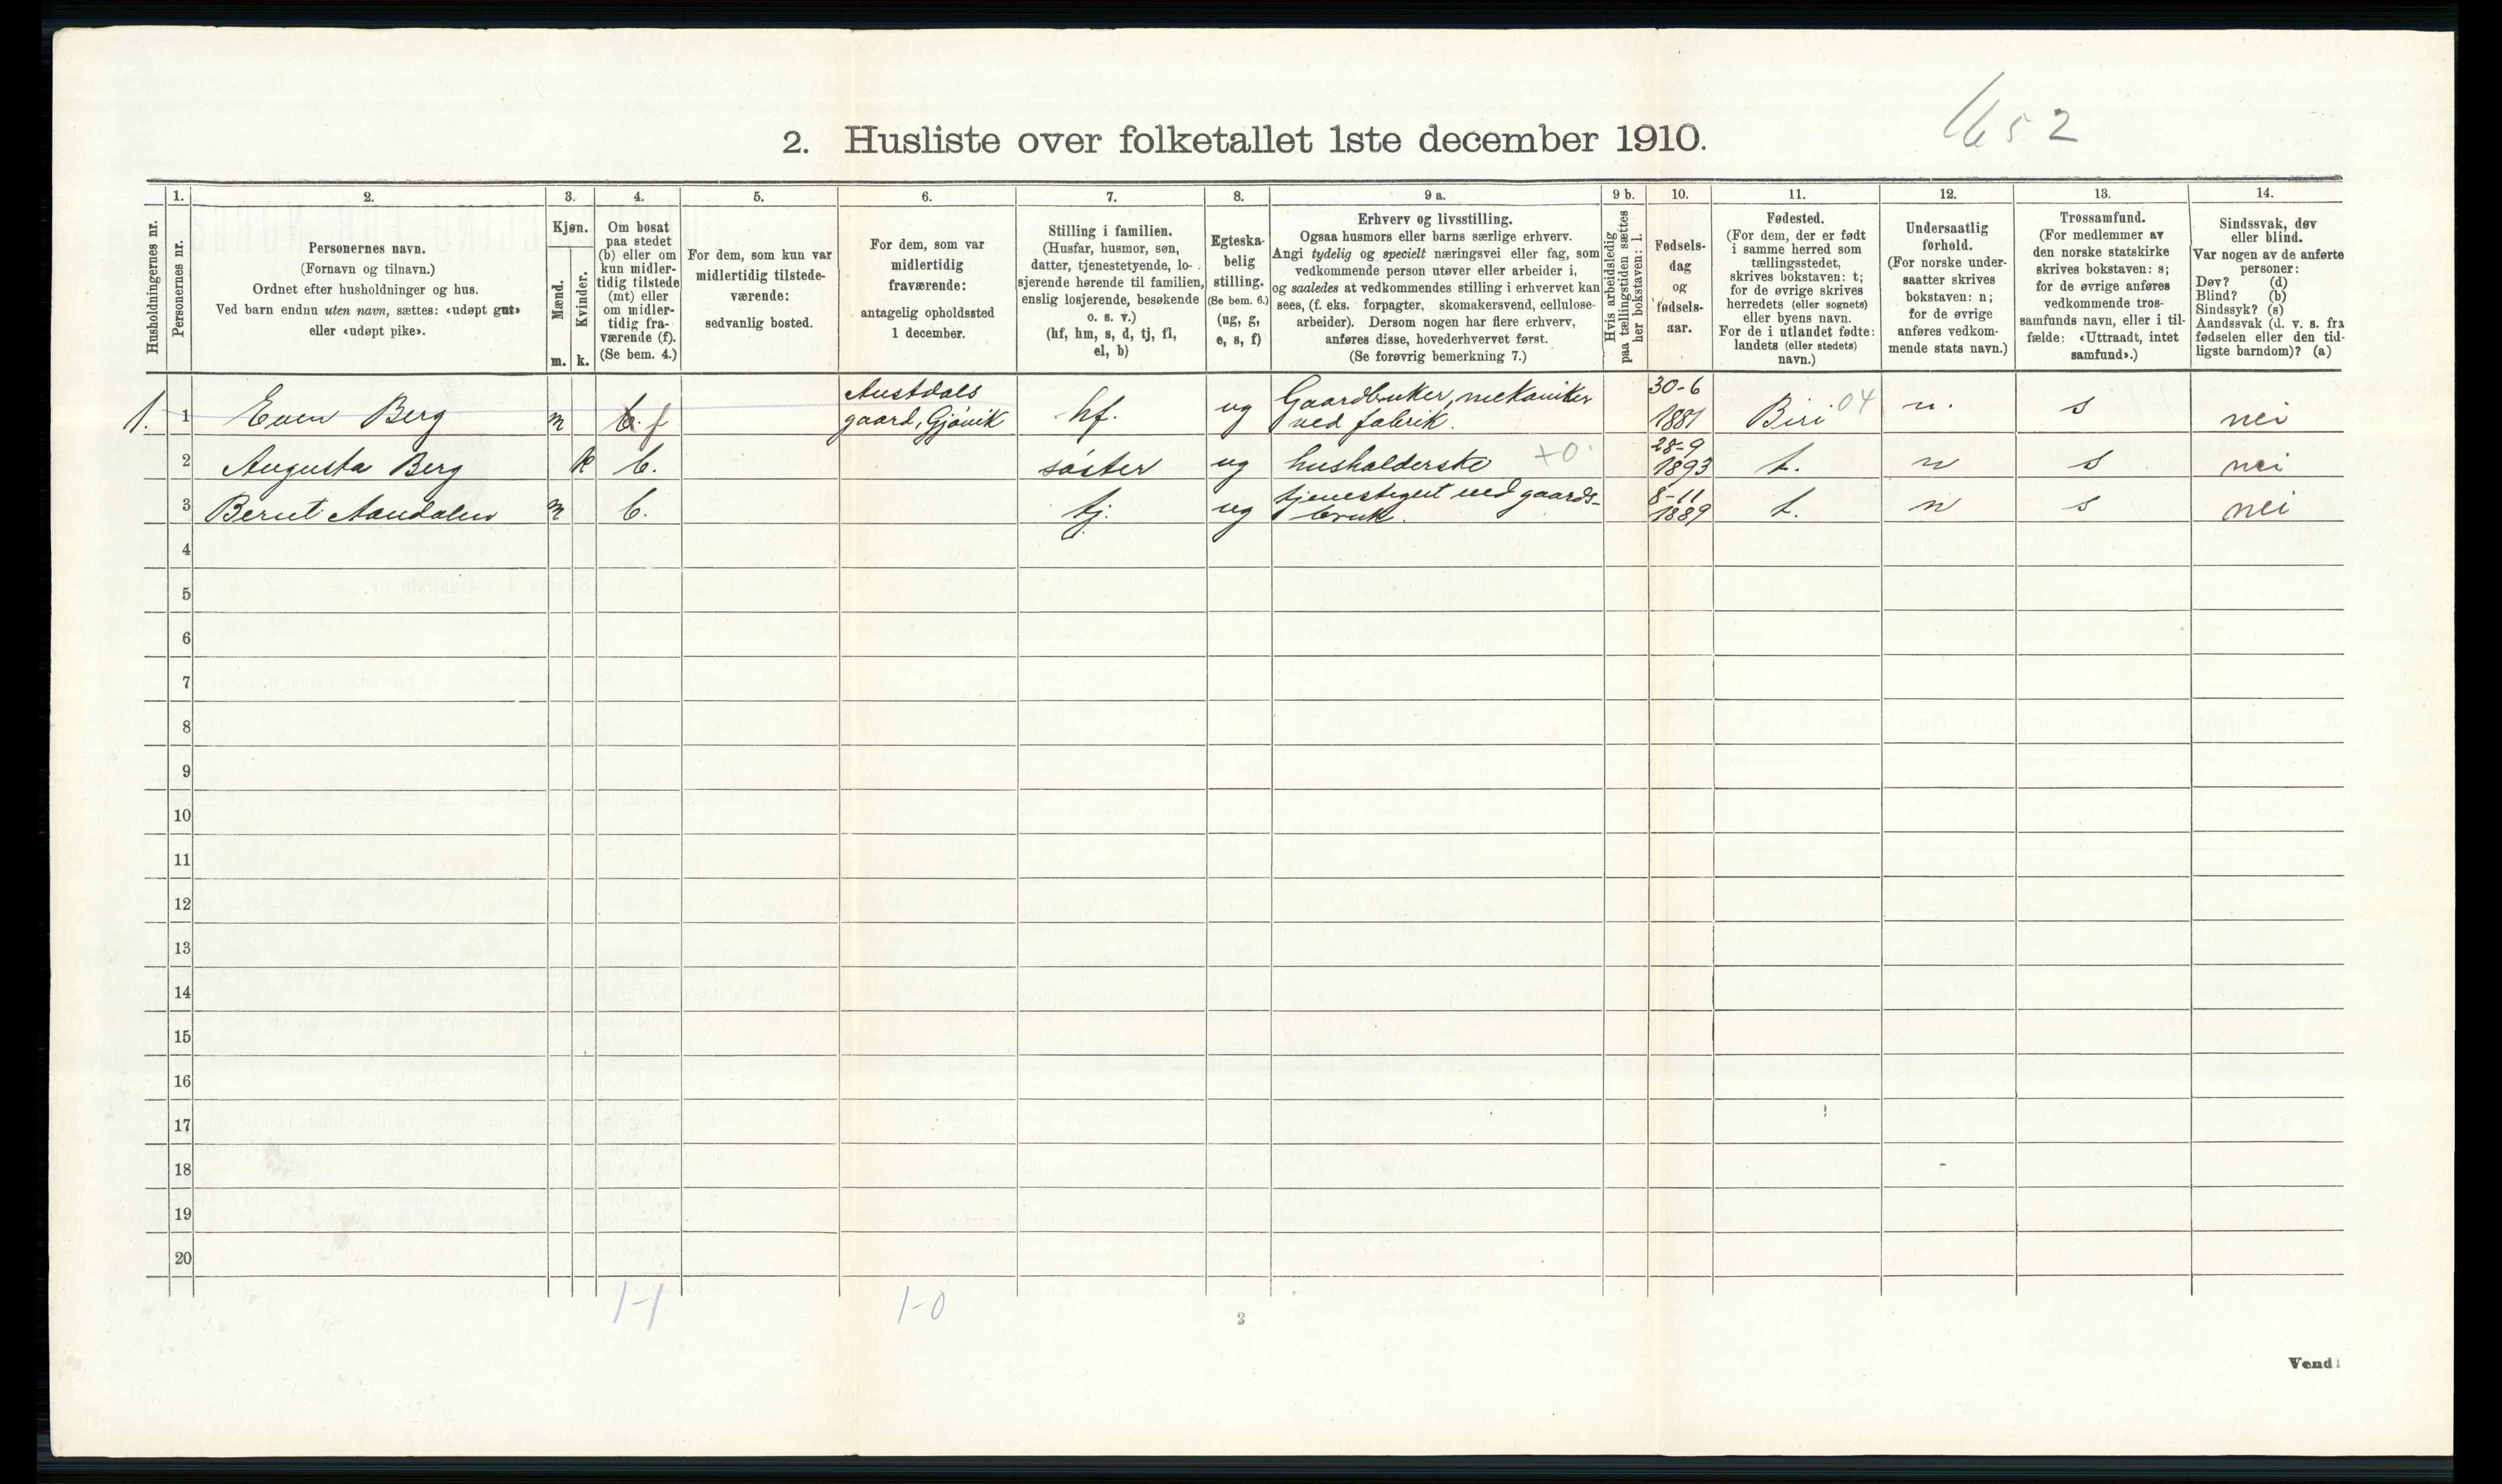 652
2. Husliste over folketallet 1ste december 1910.
Husholdningernes nr.
1.
Personernes nr.
2.
Personernes navn.
(Fornavn og tilnavn.)
Ordnet efter husholdninger og hus.
Ved barn endnu uten navn, sættes: «udøpt gut»
eller «udøpt pike».
3.
Kjøn.
Mænd.
m.
Kvinder.
k.
4.
Om bosat
paa stedet
(b) eller om
kun midler-
tidig tilstede
(mt) eller
om midler-
tidig fra-
værende (f).
(Se bem. 4.)
5.
For dem, som kun var
midlertidig tilstede-
værende:
sedvanlig bosted.
6.
For dem, som var
midlertidig
fraværende:
antagelig opholdssted
1 december.
7.
Stilling i familien.
(Husfar, husmor, søn,
datter, tjenestetyende, lo-
sjerende hørende til familien,
enslig losjerende, besøkende
o. s. v.)
(hf, hm, s, d, tj, fl,
el, b)
8.
Egteska-
belig
stilling.
(Se bem. 6.)
(ug, g,
e, s, f)
9 a.
Erhverv og livsstilling.
Ogsaa husmors eller barns særlige erhverv.
Angi tydelig og specielt næringsvei eller fag, som
vedkommende person utøver eller arbeider i,
og saaledes at vedkommendes stilling i erhvervet kan
sees, (f. eks. forpagter, skomakersvend, cellulose-
arbeider). Dersom nogen har flere erhverv,
anføres disse, hovederhvervet først.
(Se forøvrig bemerkning 7.)
9 b.
Hvis arbeidsledig
paa tællingstiden sættes
her bokstaven: l.
10.
Fødsels-
dag
og
fødsels-
aar.
11.
Fødested.
(For dem, der er født
i samme herred som
tællingsstedet,
skrives bokstaven: t;
for de øvrige skrives
herredets (eller sognets)
eller byens navn.
For de i utlandet fødte:
landets (eller stedets)
navn.)
12.
Undersaatlig
forhold.
(For norske under-
saatter skrives
bokstaven: n;
for de øvrige
anføres vedkom-
mende stats navn.)
13.
Trossamfund.
(For medlemmer av
den norske statskirke
skrives bokstaven: s;
for de øvrige anføres
vedkommende tros-
samfunds navn, eller i til-
fælde: «Uttraadt, intet
samfund».)
14.
Sindssvak, døv
eller blind.
Var nogen av de anførte
personer:
Døv? (d)
Blind? (b)
Sindssyk? (s)
Aandssvak (d. v. s. fra
fødselen eller den tid-
ligste barndom)? (a)
1. 1 Even Berg m b. f Austdals gaard, Gjøvik hf. ug Gaardbruker, mekaniker ved fabrik. 30-6 1881 Biri 04 n. s nei
2 Augusta Berg k b. søster ug husholderske +0 28-9 1893 t. n s nei
3 Bernt Aandalen m b. tj. ug tjenestegut ved gaards- bruk. 8-11 1889 t. n s nei
4
5
6
7
8
9
10
11
12
13
14
15
16
17
18
19
20
1-1
1-0
2
Vend!